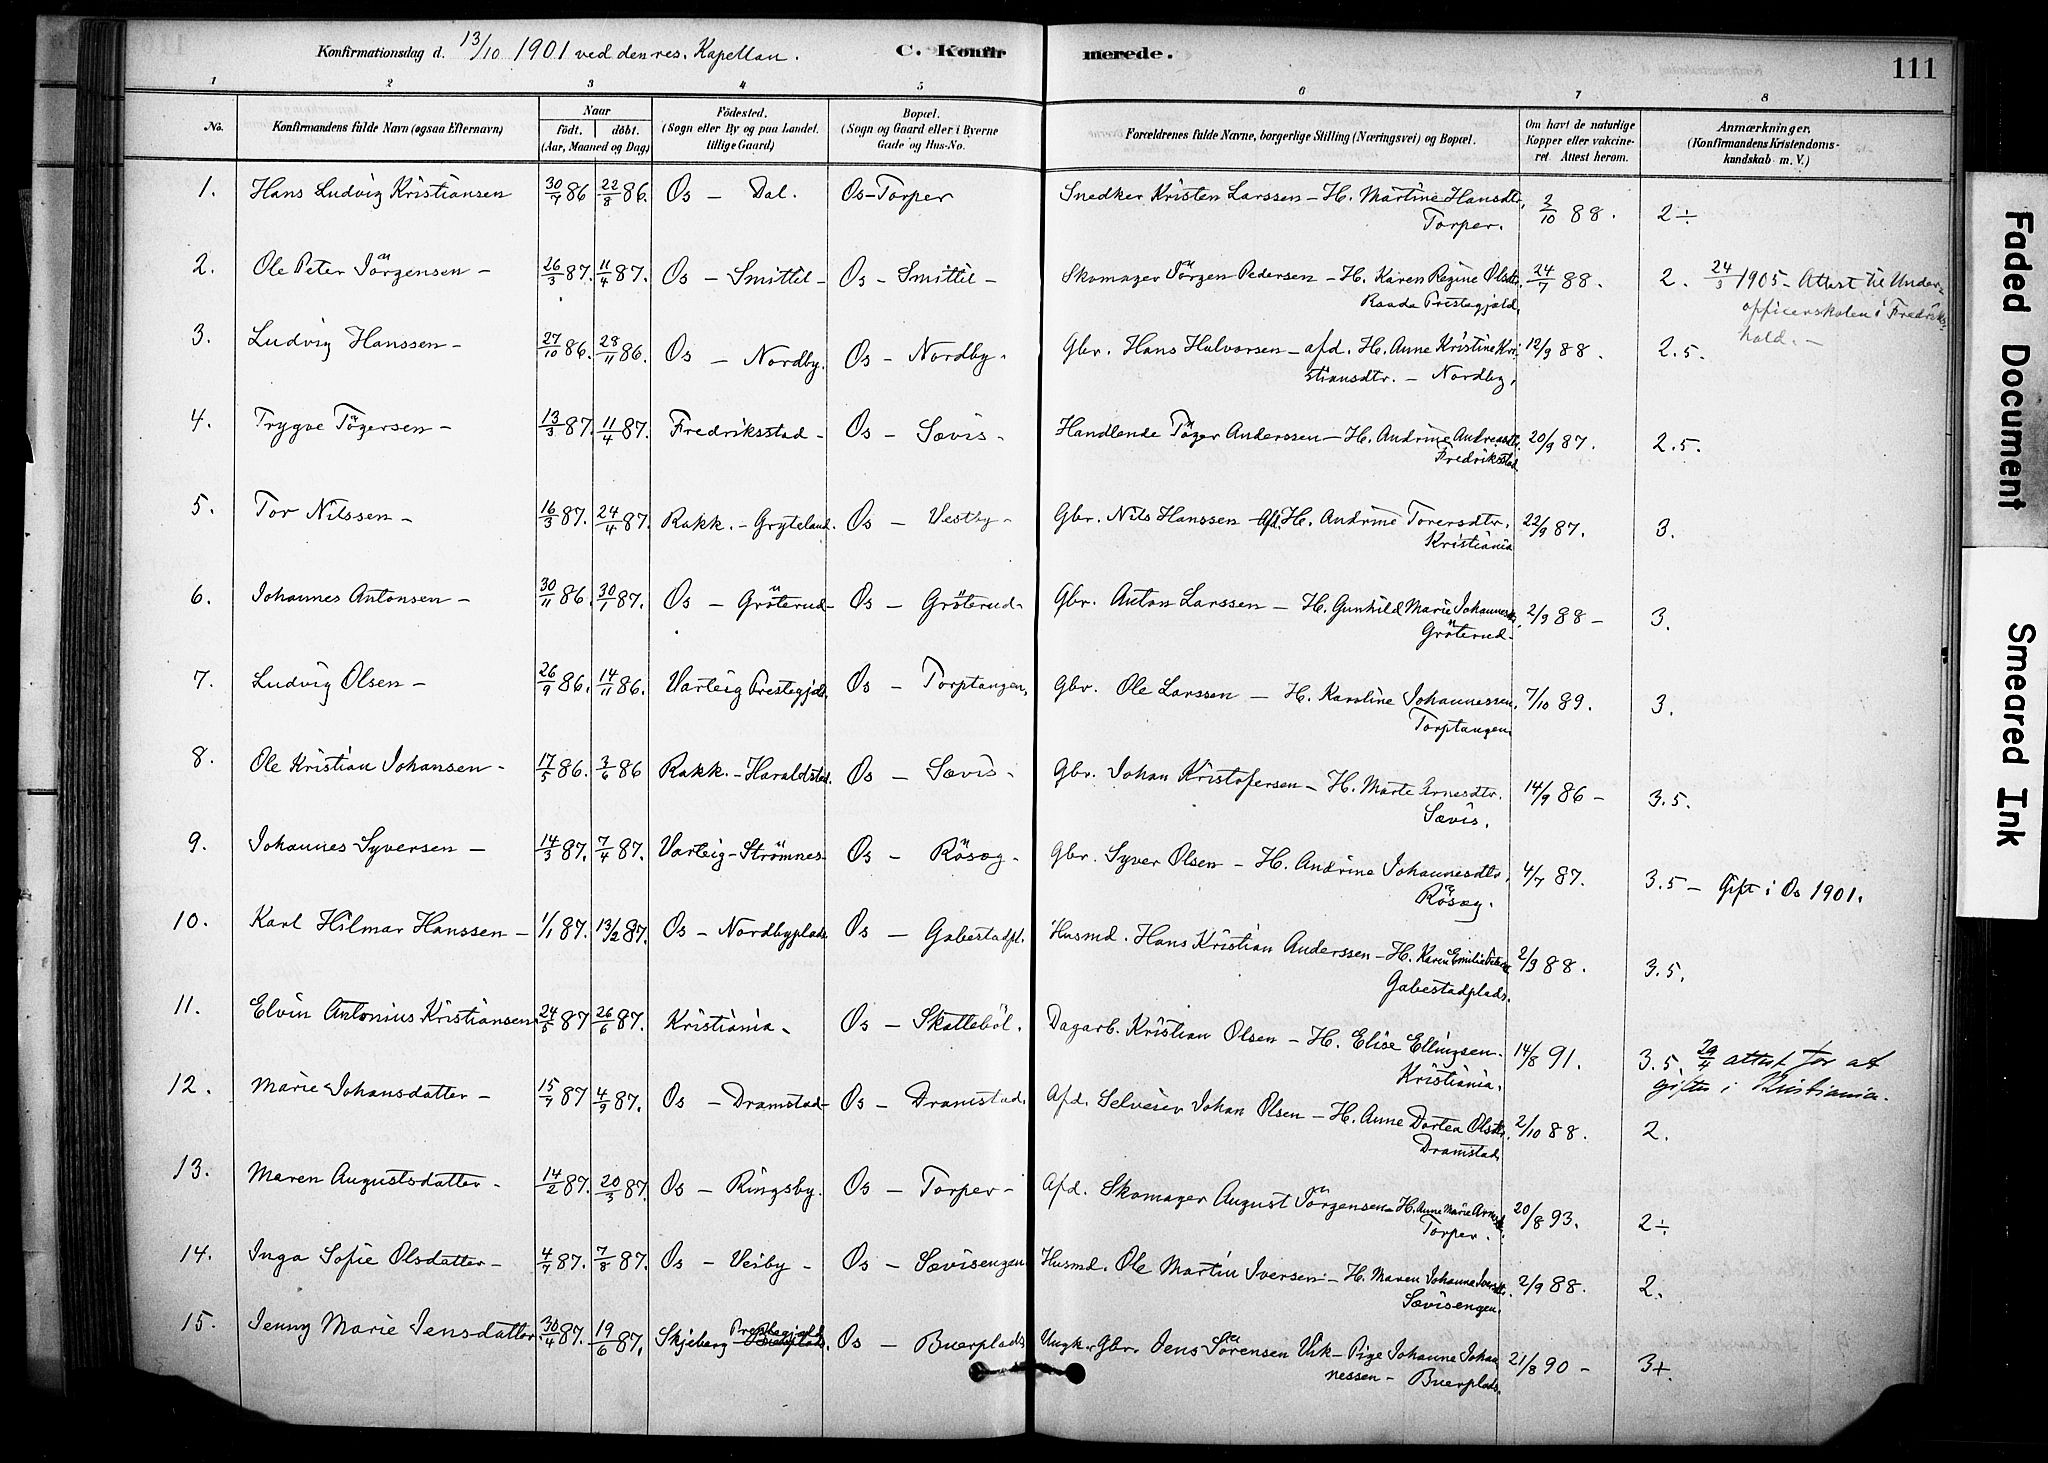 Konfirmationsdag d. 13/10 1901 ved den res. Kapellan. C. Konfirmerede. 111
1 2 3 4 5 6 7 8
No. Konfirmandens fulde Navn (ogsaa Efternavn) Naar født. døbt. (Aar, Maaned og Dag) Födested. (Sogn eller By og paa Landet tillige Gaard) Bopæl. (Sogn og Gaard eller i Byerne Gade og Hus-No. Forældrenes fulde Navne, borgerlige Stilling (Næringsvei) og Bopæl. Om havt de naturlige Kopper eller vakcineret. Attest herom. Anmærkninger. (Konfirmandens Kristendomskundskab m. V.)
1. Hans Ludvig Kristiansen 30/7 86 22/8 86. Os – Dal. Os – Torper Snedker Kristen Larssen – H. Martine Hansdtr, 3/10 88. 2 ÷
Torper.
2. Ole Peter Jörgensen – 26/3 87. 11/4 87. Os – Smittil – Os – Smittil – Skomager Jörgen Pedersen – H. Karen Regine Olsdtr. 24/7 88. 2. 24/5 1905 – Attest til Under-
Raade Prestegjæld. officerskolen i Fredriks-
hald. –
3. Ludvig Hanssen – 27/10 86. 28/11 86. Os – Nordby. Os – Nordby. Gbr. Hans Halvorsen – afd. H. Anne Kristine Kri- 12/9 88. 2.5.
stiansdtr. – Nordby.
4. Trygve Tögersen – 13/3 87. 11/4 87. Fredriksstad – Os – Sævis. Handlende Töger Anderssen – H. Andrine Andreasdtr. 20/9 87. 2.5.
Fredriksstad
5. Tor Nilssen – 16/3 87. 24/4 87. Rakk. – Gryteland. Os – Vestby – Gbr. Nils Hanssen – Afd. H. Andrine Torersdtr. 22/9 87. 3.
Kristiania
6. Johannes Antonsen – 30/11 86. 30/1 87. Os – Gröterud – Os – Gröterud. Gbr. Anton Larssen – H. Gunhild Marie Johannesdtr. 2/9 88 – 3.
Gröterud.
7. Ludvig Olsen – 26/9 86. 14/11 86. Varteig Prestegjæld. Os – Torptangen. Gbr. Ole Larssen – H. Karoline Johannessen. 7/10 89. 3.
Torptangen.
8. Ole Kristian Johansen – 17/5 86. 3/6 86 Rakk. – Haraldstad. Os – Sævis. Gbr. Johan Kristofersen – H. Marte Arnesdtr. 14/9 86 – 3.5.
Sævis.
9. Johannes Syversen – 14/3 87. 7/4 87. Varteig – Strömnes Os – Rösæg. Gbr. Syver Olsen – H. Andrine Johannesdtr, 4/7 87. 3.5 – Gift i Os 1901.
Rösæg.
10. Karl Hilmar Hanssen – 1/1 87. 13/2 87. Os – Nordbyplads Os – Gabestadpl. Husmd. Hans Kristian Anderssen – H. Karen Emilie 2/9 88. 3.5.
Gabestadplads.
11. Elvin Antonius Kristiansen. 24/5 87 26/6 87. Kristiania – Os – Skatteböl. Dagarb. Kristian Olsen – H. Elise Ellingsen. 14/8 91. 3.5. 29/4 attest for at
Kristiania. giftes i Kristiania.
12. Marie Johansdatter – 15/7 87 4/9 87. Os – Dramstad – Os – Dramstad. Afd. Selveier Johan Olsen – H. Anne Dortea Olsdtr. 2/10 88. 2.
Dramstad
13. Maren Augustsdatter – 14/2 87. 20/3 87. Os – Ringsby. Os – Torper – Afd. Skomager August Jörgensen – H. Anne Marie Arnesdtr. 20/8 93. 2 ÷
Torper.
14. Inga Sofie Olsdatter – 4/7 87. 7/8 87. Os – Veiby – Os – Sævisengen Husmd. Ole Martin Iversen – H. Maren Johanne Iversdtr. 2/9 88. 2.
Sævisengen.
15. Jenny Marie Jensdatter. 30/4 87. 19/6 87. Skjeberg Prestegjæld Os – Buerplads Ungk. Gbr. Jens Sörensen Vik – Pige Johanne Johan- 21/8 90 – 3+.
nessen – Buerplads.
Faded Document
Smeared Ink